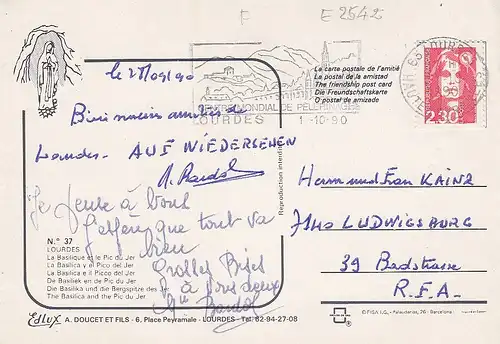 F
E 2542
le 28/09/90
La carte postale de l'amitié
La postal de la amistad
The friendship post card
Die Freundschaftskarte
O postal de amizade
CENTRE MONDIAL DE PELERINAGES
LOURDES 1-10-90
REPUBLIQUE FRANÇAISE
2.30
Lourdes - AUF WIEDERSEHEN
Je pense à vous
j'espère que tout va
bien
Grosses Bises
à vous deux
Reproduction interdite
Herrn und Frau KAINZ
7140 LUDWIGSBURG
39 Badstrasse
R.F.A.
N.° 37
LOURDES
La Basilique et le Pic du Jer
La Basilica y el Pico del Jer
La Basilica e il Picco del Jer
De Basiliek en de Pic du Jer
Die Basilika und die Bergspitze des Jer
The Basilica and the Pic du Jer
Edlux A. DOUCET ET FILS - 6, Place Peyramale - LOURDES - Tel: 62-94-27-08